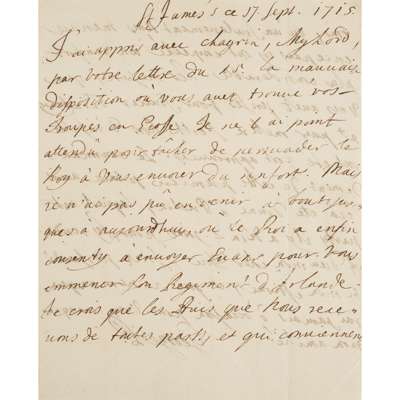 St James's ce 17 Sept. 1715
J'ai appris avec chagrin, Mylord,
par votre lettre du la mauvaise
disposition où vous avez trouvé vos
troupes en Ecosse Je n'ai point
attendu pour tacher de persuader le
Roy à Vous envoyer du renfort. Mais
je n'ai pas pu en venir à bout jus-
ques a aujourdhui, où le Roi a enfin
consenty à envoyer Evans pour Vous
emmener son Regiment d'Irlande.
Je crois que les avis que Nous rece-
vons de toutes parts, et qui conviennent